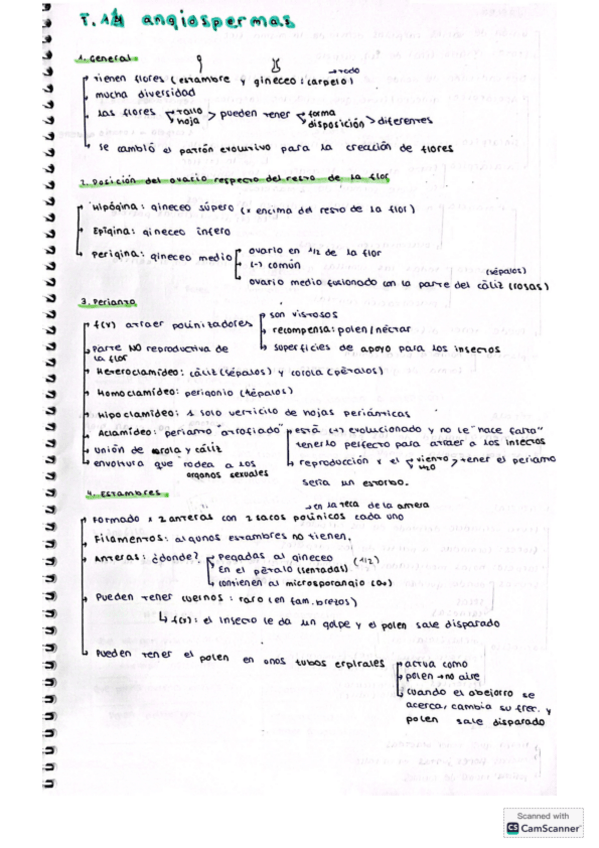 T. angiospermas
1. General
todo
tienen flores (estambre y gineceo: carpelo)
mucha diversidad
las flores tallo hoja > pueden tener forma disposición > diferentes
se cambió el patrón evolutivo para la creación de flores
2. Posición del ovario respecto del resto de la flor
Hipógina: gineceo súpero (x encima del resto de la flor)
Epígina: gineceo ínfero
Perigina: gineceo medio ovario en 1/2 de la flor
(-) común
(sépalos)
ovario medio fusionado con la parte del cáliz (rosas)
3. Perianto
son vistosos
f(x) atraer polinizadores recompensa: polen/néctar
parte NO reproductiva de superficies de apoyo para los insectos
la flor
Heteroclamídeo: cáliz (sépalos) y corola (pétalos)
Homoclamídeo: perigonio (tépalos)
Hipoclamídeo: 1 solo verticilo de hojas periánticas
Aclamídeo: perianto "atrofiado" está (+) evolucionado y no le "hace falta"
unión de corola y cáliz tenerlo perfecto para atraer a los insectos
envoltura que rodea a los reproducción x el viento H2O > tener el perianto
órganos sexuales
sería un estorbo.
4. Estambres
en la teca de la antera
Formado x 2 anteras con 2 sacos polínicos cada uno
Filamentos: algunos estambres no tienen.
Anteras: ¿donde? Pegadas al gineceo
En el pétalo (sentadas)
contienen al microsporangio
Pueden tener cuernos: raro (en fam. brezos)
f(x): el insecto le da un golpe y el polen sale disparado
Pueden tener el polen en unos tubos espirales actua como
polen → no aire
cuando el abejorro se
acerca, cambia su frec. y
polen sale disparado
Scanned with
CS CamScanner